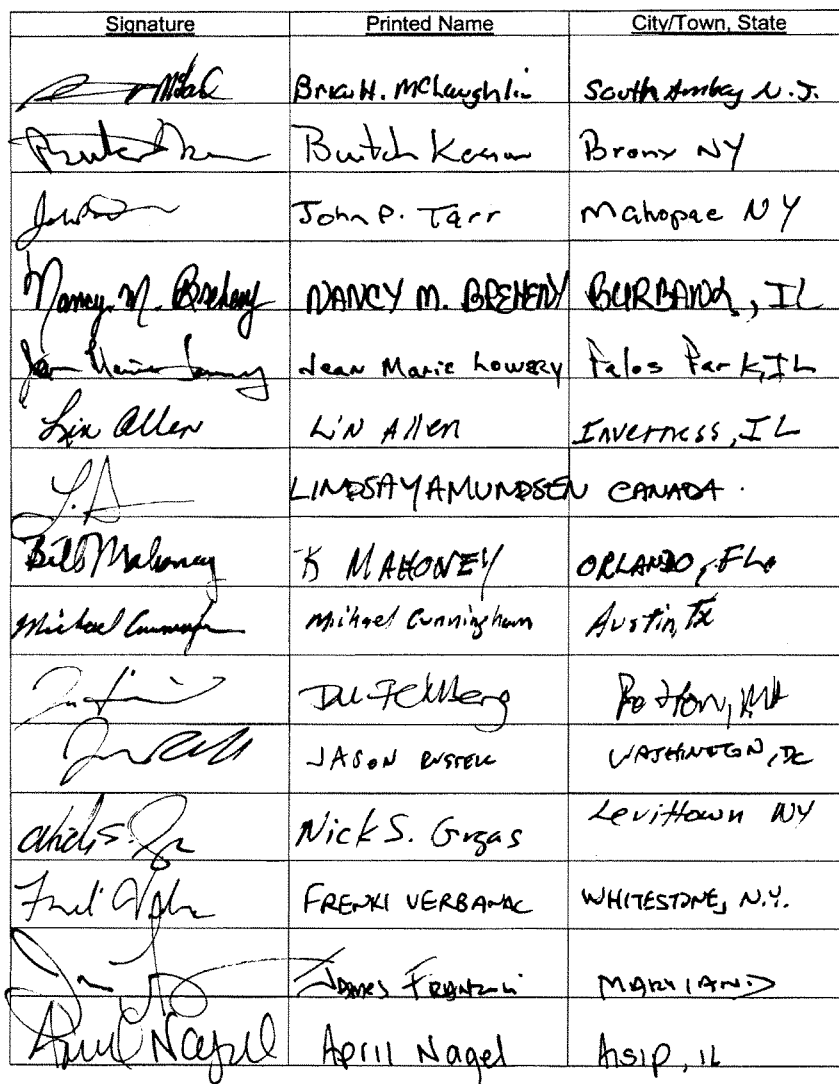 Signature Printed Name City/Town, State
Brian H. McLaughlin South Amboy N.J.
Butch Bronx NY
John P. Tarr Mahopac NY
Nancy M. Breheny NANCY M. BREHENY BURBANK, IL
Jean Marie Lowery Palos Park, IL
Lin Allen Lin Allen Inverness, IL
LINDSAY AMUNDSEN CANADA.
Bill Mahoney MAHONEY ORLANDO, FL
Michael Cunningham Michael Cunningham Austin, TX
JASON WASHINGTON, DC
Nick S. Levittown NY
FRENKI VERBANAC WHITESTONE, N.Y.
JAMES MARYLAND
April Nagel April Nagel Alsip, IL